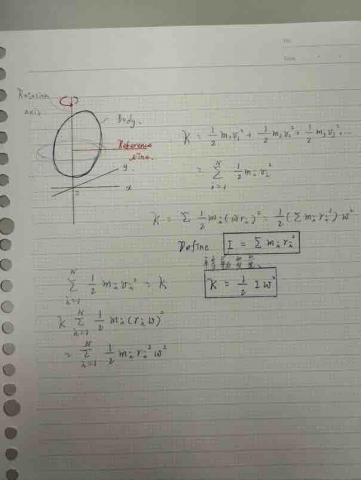 Rotation
axis
Body.
Reference
line.
y
x
z
K = 1/2 m₁v₁² + 1/2 m₂v₂² + 1/2 m₃v₃² ...
= Σ_{i=1}^{N} 1/2 mᵢvᵢ²
K = Σ 1/2 mᵢ(ωrᵢ)² = 1/2 (Σ mᵢrᵢ²) ω²
Define I = Σ mᵢrᵢ²
K = 1/2 I ω²
Σ_{i=1}^{N} 1/2 mᵢvᵢ² = K
K Σ_{i=1}^{N} 1/2 mᵢ(rᵢω)²
= Σ_{i=1}^{N} 1/2 mᵢrᵢ²ω²